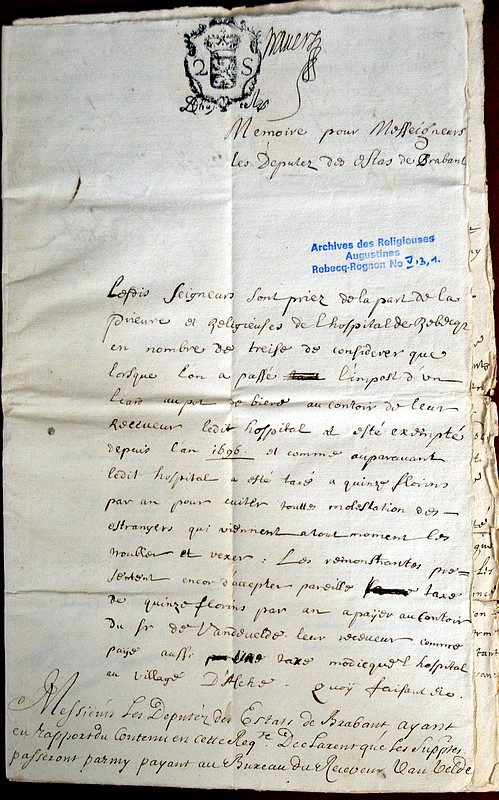 2 S
Memoire pour Messeigneurs
les Deputez des estas de Brabant
Archives des Religieuses
Augustines
Rebecq-Rognon No V.3,1.
Lesdis Seigneurs sont priez de la part de la
prieure et Religieuses de l hospital de Rebecq
en nombre de treise de considerer que
lorsque l'on a passé l'impost d'un
liard au pot de biere au contoir de leur
Recepveur ledit hospital at esté exempté
depuis l'an 1696 et comme auparavant
ledit hospital a esté taxé a quinze florins
par an pour eviter touttes molestation des
estrangers qui viennent a tout moment les
troubler et vexer: Les remonstrantes pre=
sentent encor d'accepter pareille taxe
de quinze florins par an a payer au contoir
du sr de Vandevelde leur receveur comme
paye aussi une taxe modicque l hospital
au village D'Asche. quoÿ faisant &c.
Messieurs Les Deputéz des Estats de Brabant ayant
eu rapport du Contenu en cette Reqte Declarent que les Suppltes
passeront parmy payant au Bureau du Receveur Van Velde